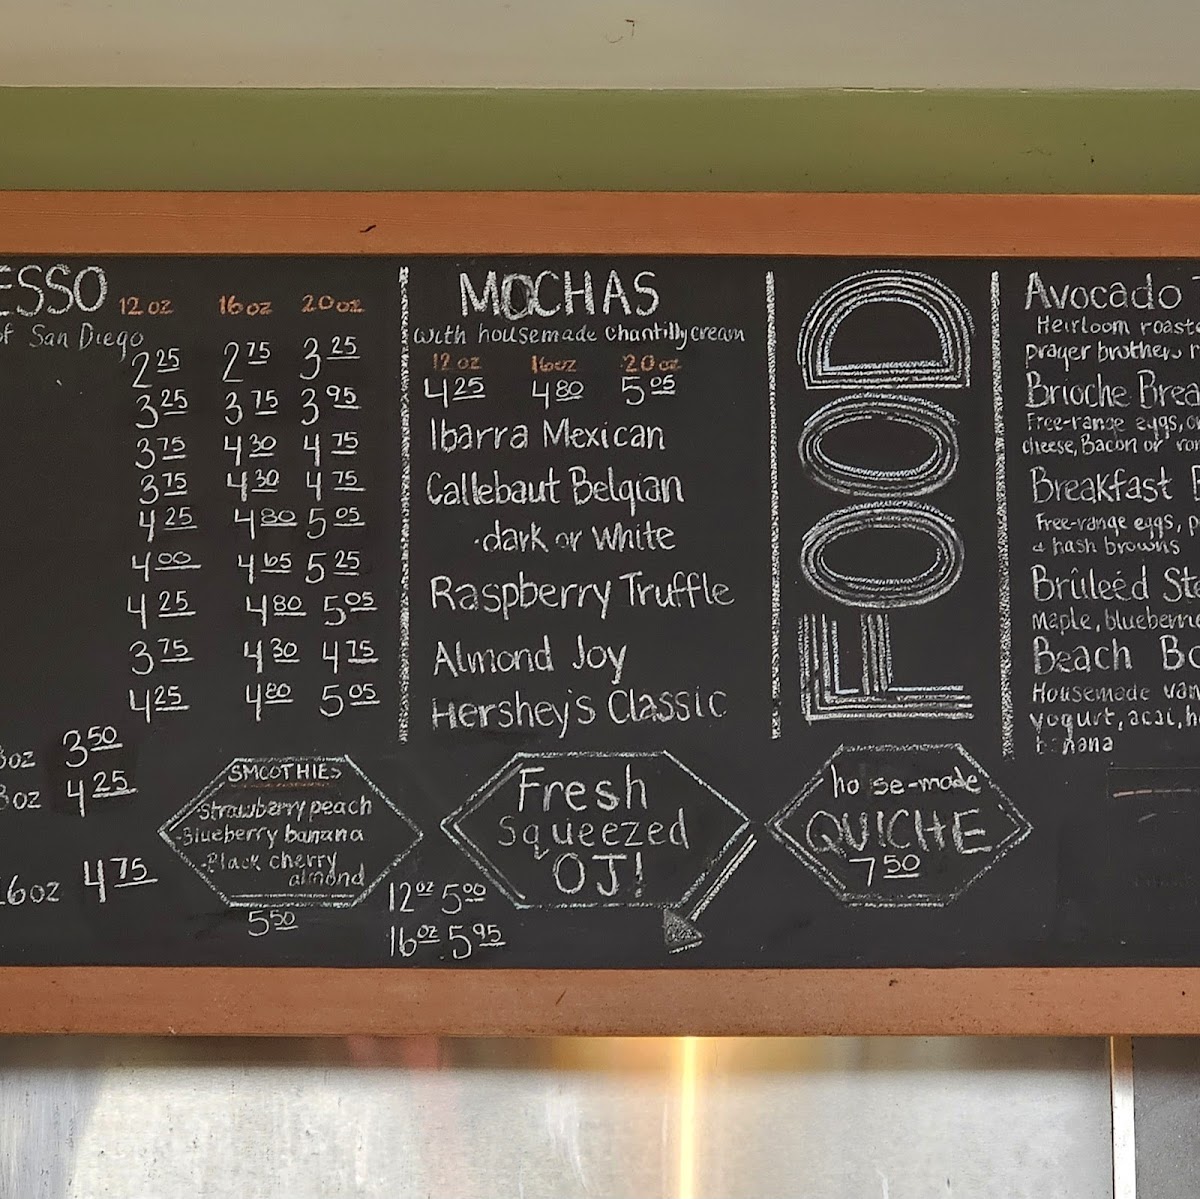 ESSO 12 oz 16oz 20oz
of San Diego
2 25 2 75 3 25
3 25 3 75 3 95
3 75 4 30 4 75
3 75 4 30 4 75
4 25 4 80 5 05
4 00 4 65 5 25
4 25 4 80 5 05
3 75 4 30 4 75
4 25 4 80 5 05
oz 3 50
oz 4 25
16oz 4 75
SMOOTHIES
-Strawberry peach
-Blueberry banana
-Black cherry
almond
5 50
MOCHAS
with housemade Chantilly cream
12 oz 16oz 20oz
4 25 4 80 5 05
Ibarra Mexican
Callebaut Belgian
·dark or White
Raspberry Truffle
Almond Joy
Hershey's Classic
Fresh
Squeezed
OJ!
12oz 5 00
16oz 5 95
FOOD
house-made
QUICHE
7 50
Avocado
Heirloom
prager brothers
Brioche
Free-range eggs,
cheese, Bacon or
Breakfast
Free-range eggs,
& hash browns
Brûleéd
Maple,
Beach
Housemade
yogurt, acai,
banana